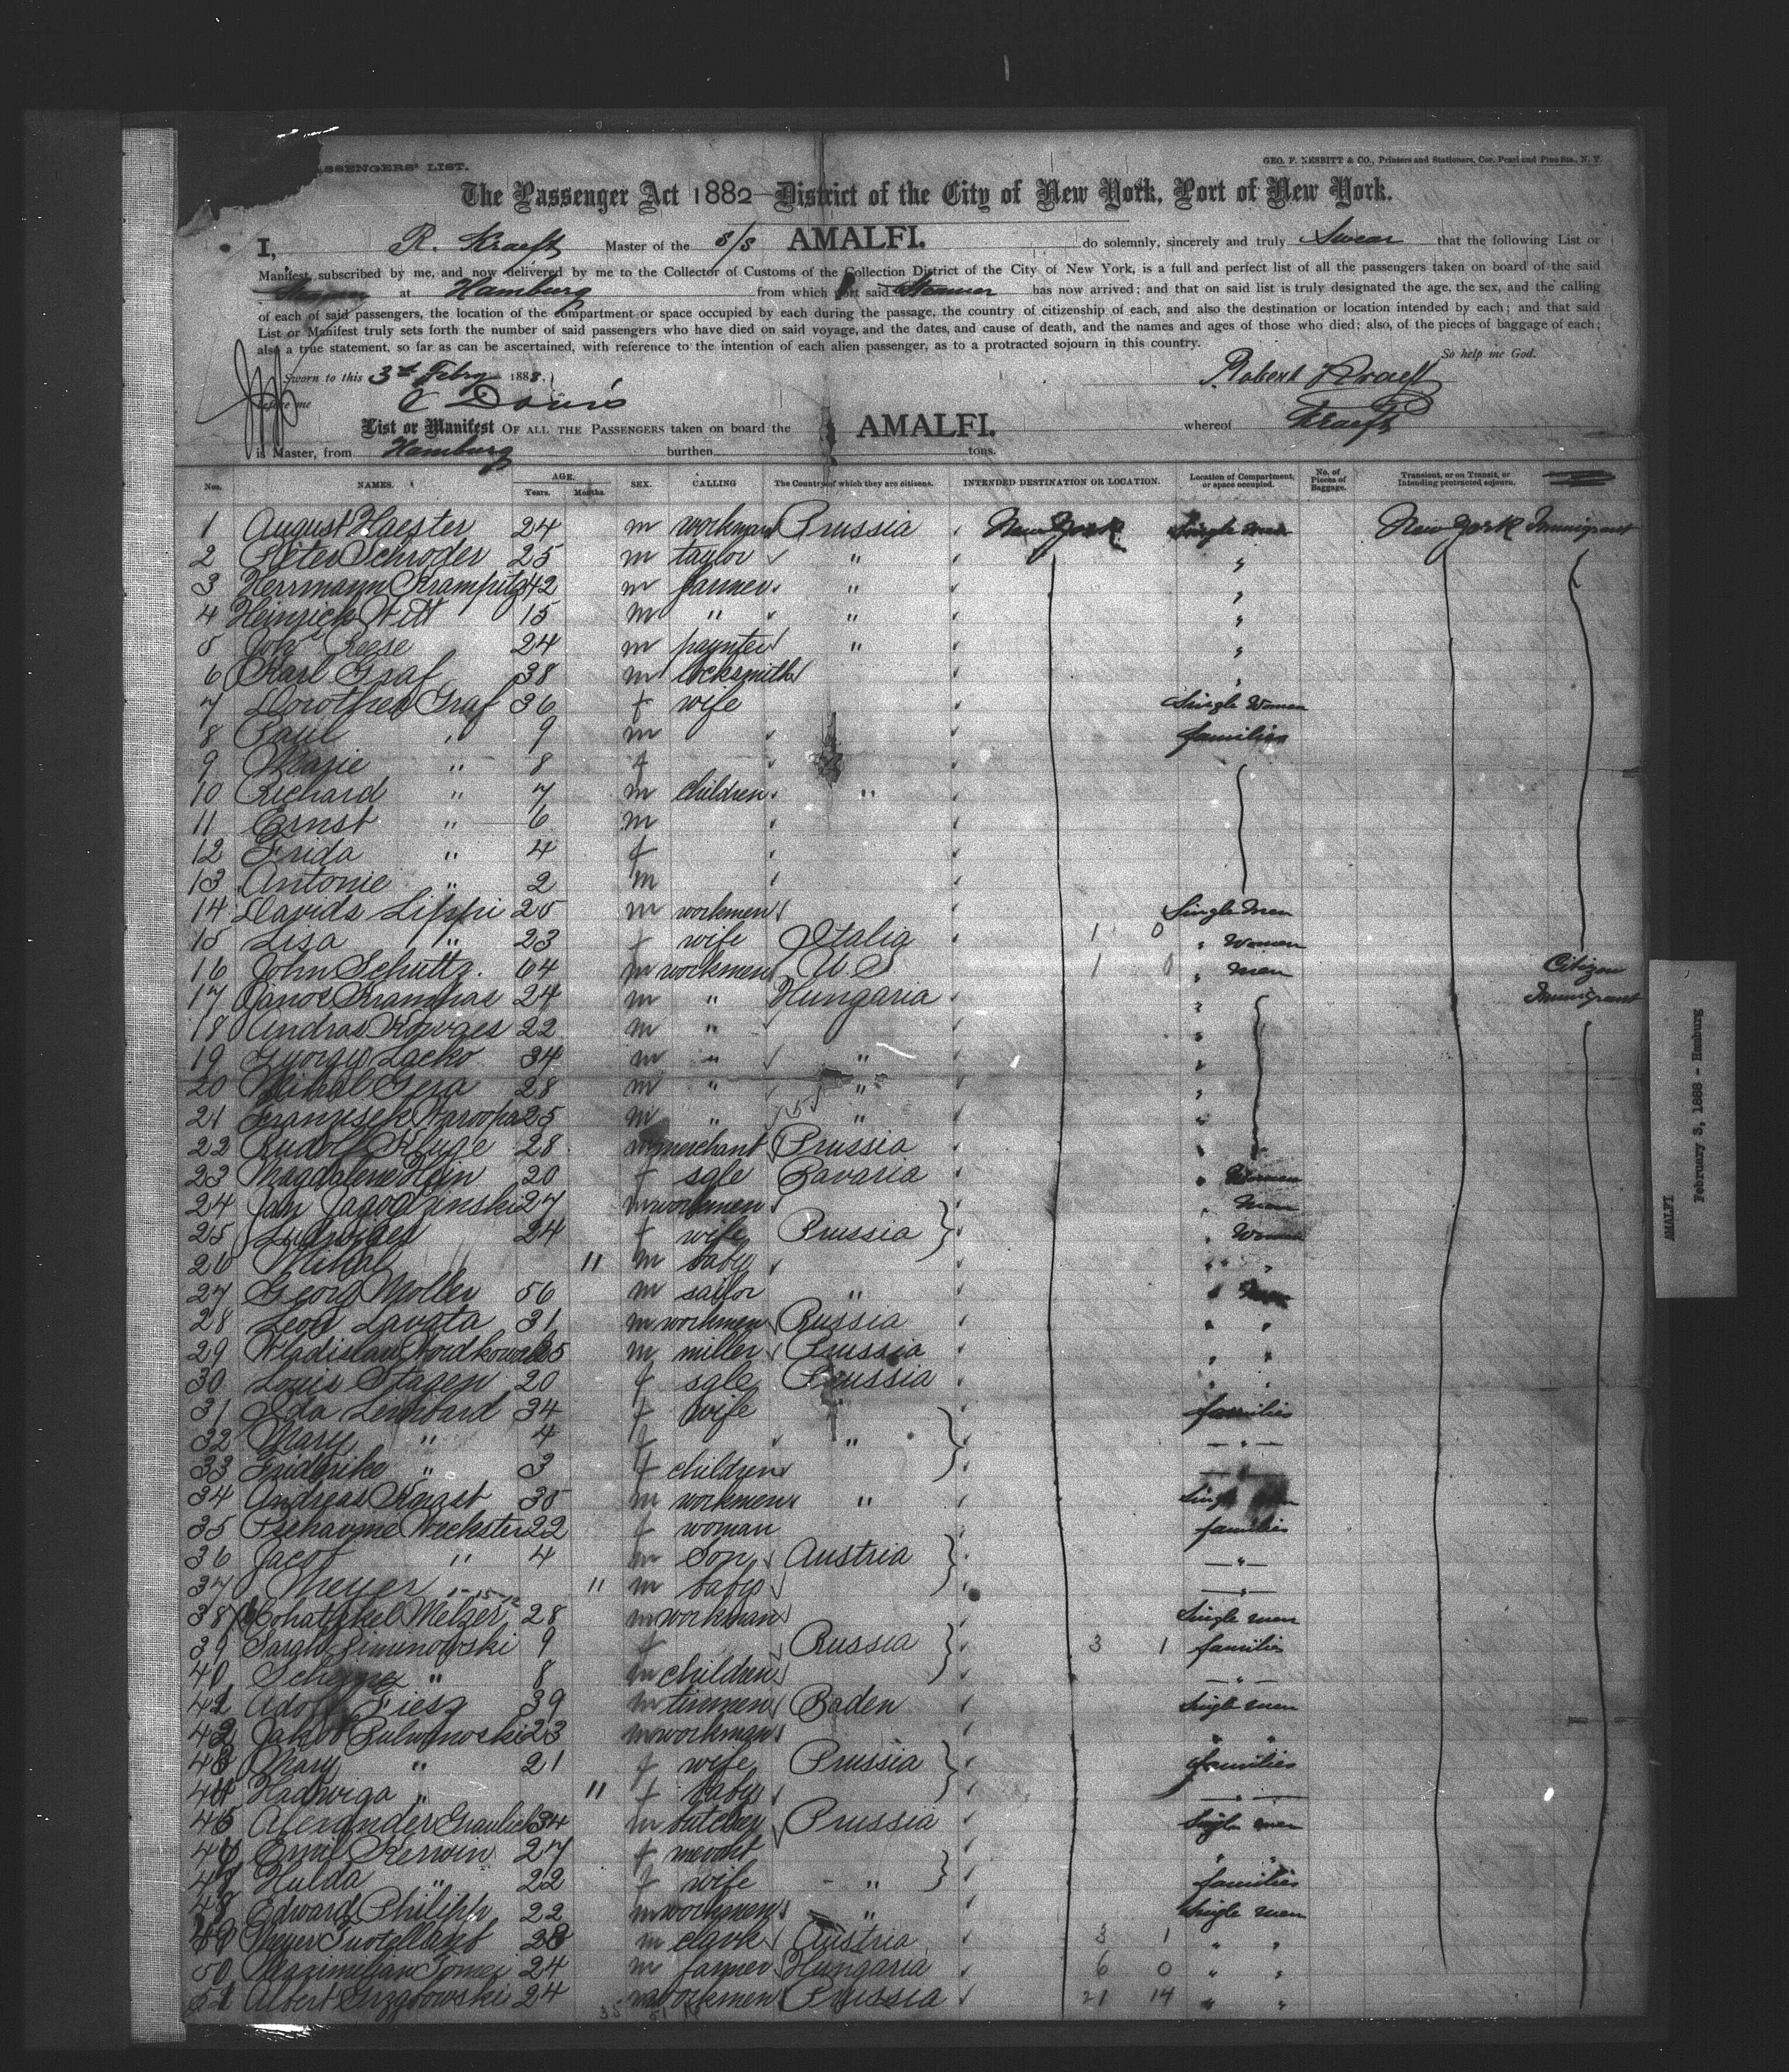 ASSENGERS' LIST.
GEO. F. NESBITT & CO., Printers and Stationers, Cor. Pearl and Pine Sts., N. Y.
The Passenger Act 1882 District of the City of New York, Port of New York.
I, R. Kraeft Master of the S/S AMALFI. do solemnly, sincerely and truly Swear that the following List or
Manifest, subscribed by me, and now delivered by me to the Collector of Customs of the Collection District of the City of New York, is a full and perfect list of all the passengers taken on board of the said
at Hamburg from which port said Steamer has now arrived; and that on said list is truly designated the age, the sex, and the calling
of each of said passengers, the location of the compartment or space occupied by each during the passage, the country of citizenship of each, and also the destination or location intended by each; and that said
List or Manifest truly sets forth the number of said passengers who have died on said voyage, and the dates, and cause of death, and the names and ages of those who died; also, of the pieces of baggage of each;
also a true statement, so far as can be ascertained, with reference to the intention of each alien passenger, as to a protracted sojourn in this country.
So help me God.
Sworn to this 3rd Febry 1888.
Robert Kraeft
before me C Davis
List or Manifest OF ALL THE PASSENGERS taken on board the AMALFI. whereof Kraeft
is Master, from Hamburg burthen tons.
Nos. NAMES. AGE. Years. Months. SEX. CALLING The Country of which they are citizens. INTENDED DESTINATION OR LOCATION. Location of Compartment, or space occupied. No. of Pieces of Baggage. Transient, or on Transit, or Intending protracted sojourn.
1 August Haester 24 m workman Prussia New York Single men New York Immigrant
2 Peter Schroder 25 m taylor " "
3 Herrmann Krampitz 42 m farmer " "
4 Heinrich Witt 15 m " " "
5 Joh Reese 24 m paynter " "
6 Karl Graf 38 m locksmith "
7 Dorothea Graf 36 f wife Single Women
8 Paul " 9 m families
9 Marie " 8 f
10 Richard " 7 m children "
11 Ernst " 6 m
12 Frida " 4 f
13 Antonie " 2 m
14 Davids Lippi 25 m workmen Single men
15 Lisa " 23 f wife Italia 1 0 " Women
16 John Schultz. 64 m workmen U.S 1 0 " men Citizen
17 Janos 24 m " Hungaria " Immigrant
18 Andras 22 m " "
19 Gyorgy Lacko 34 m " " "
20 Mihal Gera 28 m " " "
21 25 m " " "
22 Rudolf Kluge 28 m merchant Prussia "
23 Magdalene Hein 20 f sgle Bavaria " Women
24 Jan Jagodzinski 27 m workmen " men
25 24 f wife Prussia " Women
26 Mihal 11 m baby " "
27 Georg Moller 56 m sailor "
28 Leon Lavata 31 m workmen Russia " "
29 Wladislaw 35 m miller Prussia " "
30 Louis Stagen 20 f sgle Prussia " "
31 Ida Lenhard 34 f wife families
32 Mary " 4 f " "
33 Friderike " 3 f children "
34 Andreas 35 m workmen "
35 22 f woman families
36 Jacob " 4 m son Austria "
37 Meyer 11 m baby "
38 Melzer 28 m workman Single men
39 Sarah 9 f Russia 3 1 families
40 " 8 m children "
41 Adolf Fiess 39 m tinmen Baden Single men
42 Jakob 23 m workman " "
43 Mary " 21 f wife Prussia families
44 Hadwiga " 11 f baby "
45 Alexander 34 m butcher Prussia Single men
46 Emil Kerwin 27 f " "
47 Hulda " 22 f wife " families
48 Edward Philipp 22 m workmen " Single men
49 28 m clark Austria 3 1 " "
50 Maximilian 24 m farmer Hungaria 6 0 " "
51 Albert 24 m workmen Prussia 21 14 " "
AMALFI
February 3, 1888 - Hamburg